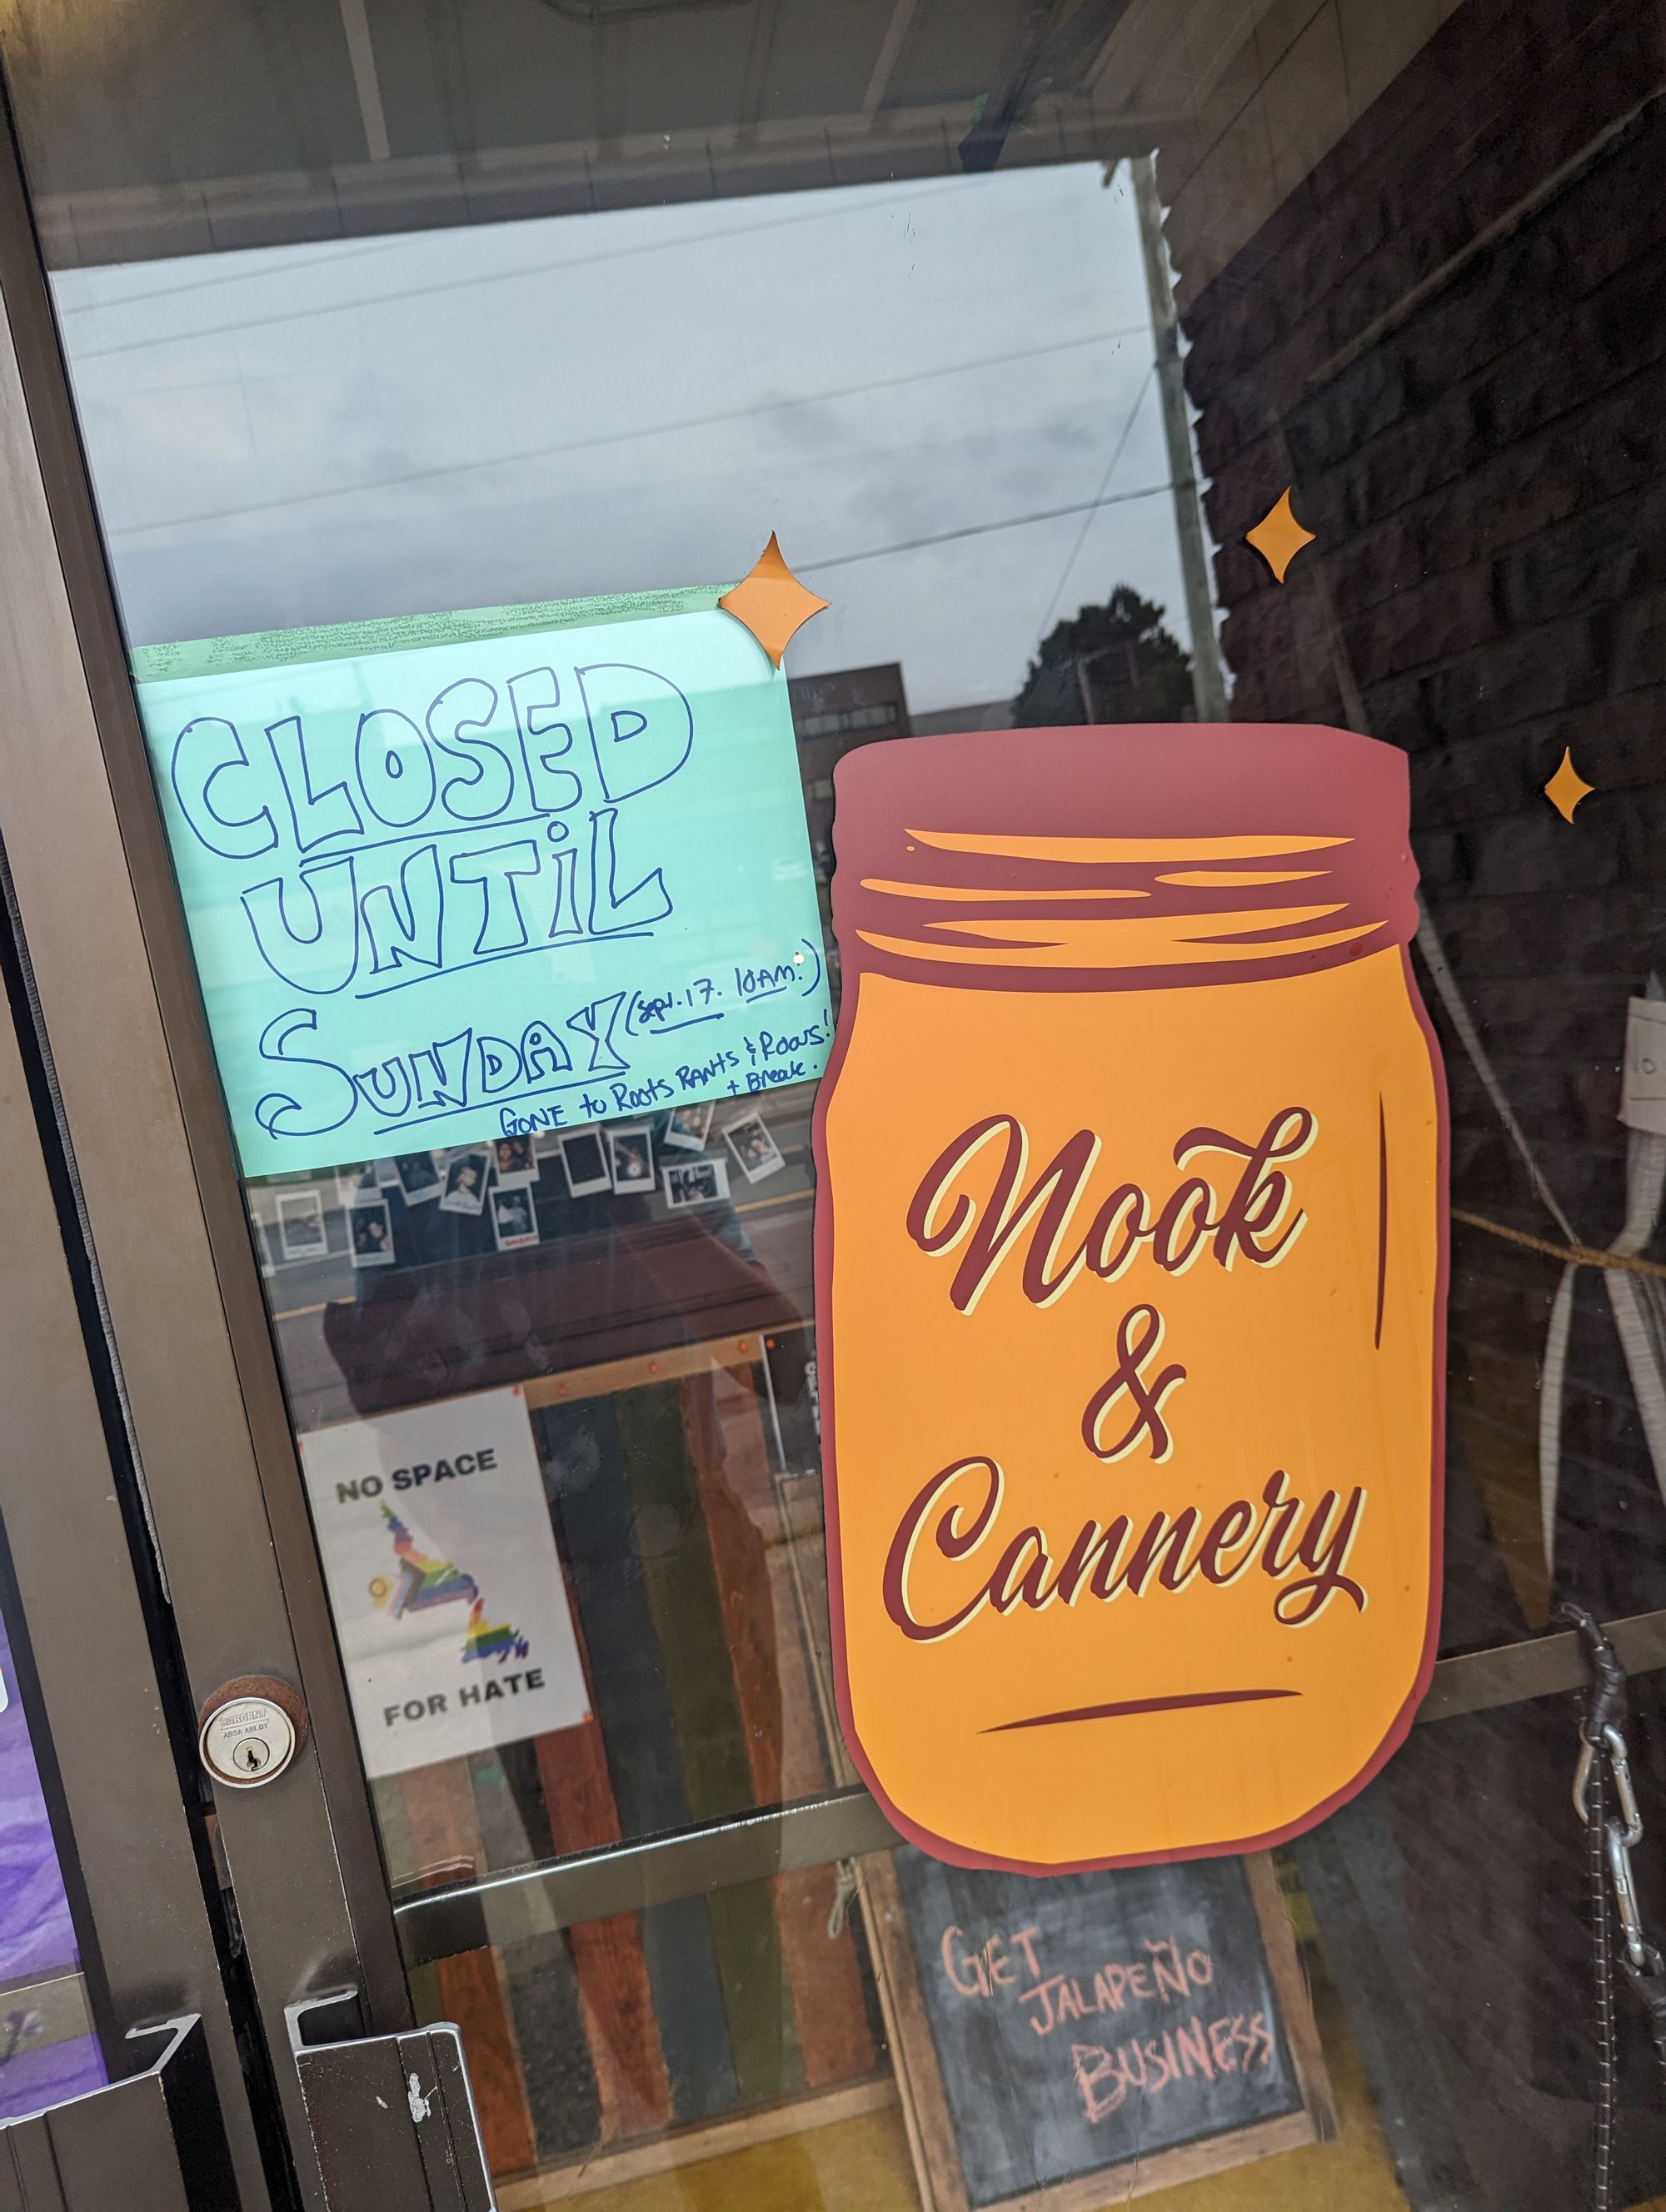 CLOSED
UNTIL
SUNDAY (Sept. 17. 10AM.)
GONE to Roots RANTS & Roars!
+ Break.
Nook
&
Cannery
NO SPACE
FOR HATE
SARGENT
ASSA ABLOY
GET
JALAPEÑO
BUSINESS